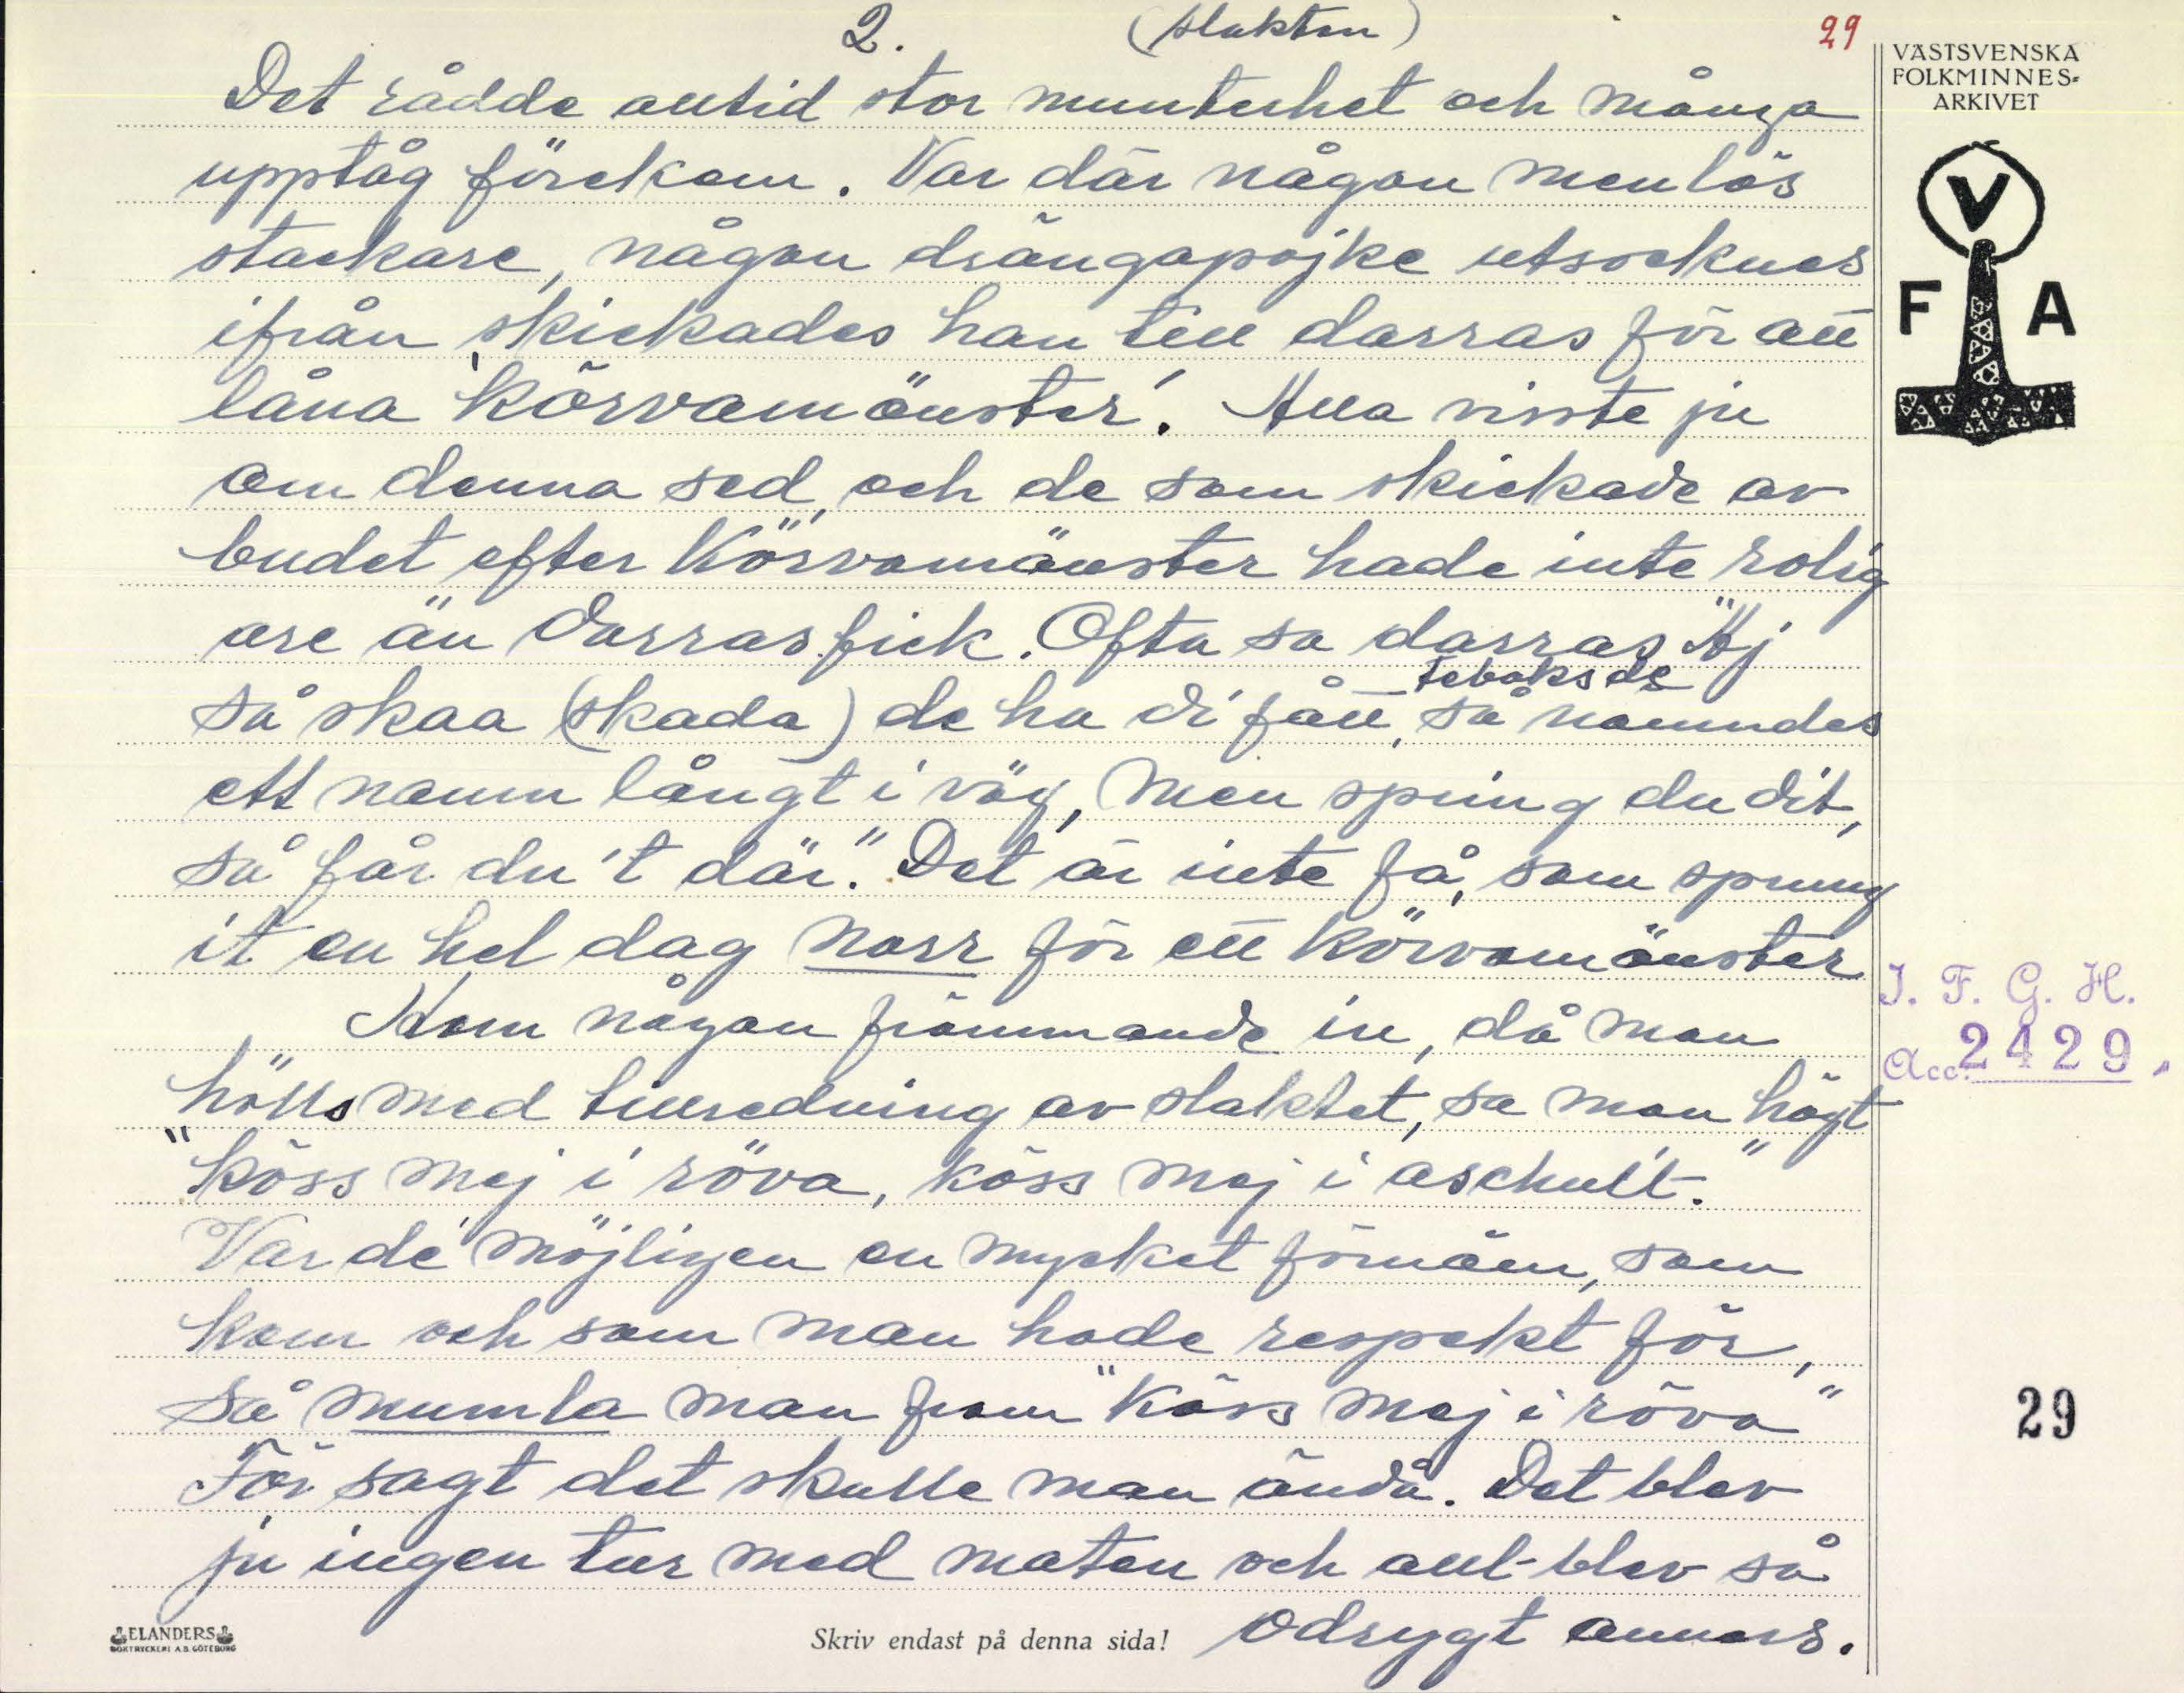 2. (slakten) 29
Det rådde alltid stor munterhet och många
upptåg förekom. Var där någon menlös
stackare, någon drängapojke utsocknes
ifrån skickades han till darras för att
låna 'körvamönster'. Alla visste ju
om denna sed, och de som skickade av
budet efter körvamönster hade inte rolig
are än darras fick. Ofta sa darras "Aj
teboks de
så skaa (skada) de ha di fått, så nämndes
ett namn långt i väg, men spring du dit,
så får du 't där." Det är inte få, som sprung
it en hel dag norr för ett körvamönster
Kom någon främmande in, då man
hölls med tillredning av slaktet, sa man högt
"köss mej i röva, köss mej i aschult."
Var de' möjligen en mycket förnäm, som
kom och som man hade respekt för,
så mumla man fram "köss mej i röva"
För sagt det skulle man ändå. Det blev
ju ingen tur med maten och allt blev så
odrygt annars.
VÄSTSVENSKA
FOLKMINNES-
ARKIVET
V
F A
I. F. G. H.
Acc. 2429.
29
ELANDERS
BOKTRYCKERI A.B. GÖTEBORG
Skriv endast på denna sida!